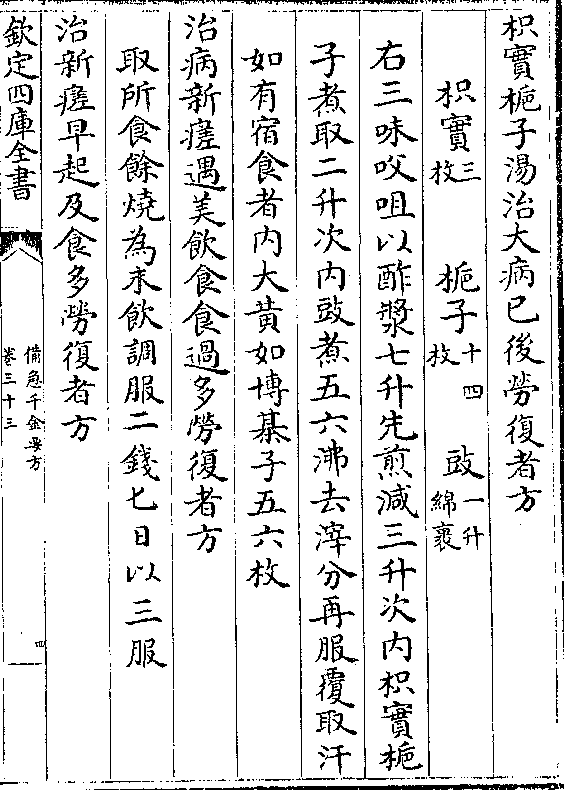 枳實梔子湯治大病已後勞復者方
枳實三枚 梔子十四枚 豉一升綿裹
右三味㕮咀以酢漿七升先煎減三升次内枳實梔
子煮取二升次内豉煮五六沸去滓分再服覆取汗
如有宿食者内大黄如博棊子五六枚
治病新瘥遇美飲食食過多勞復者方
取所食餘燒為末飲調服二錢匕日以三服
治新瘥早起及食多勞復者方
欽定四庫全書
備急千金要方
卷三十三
四